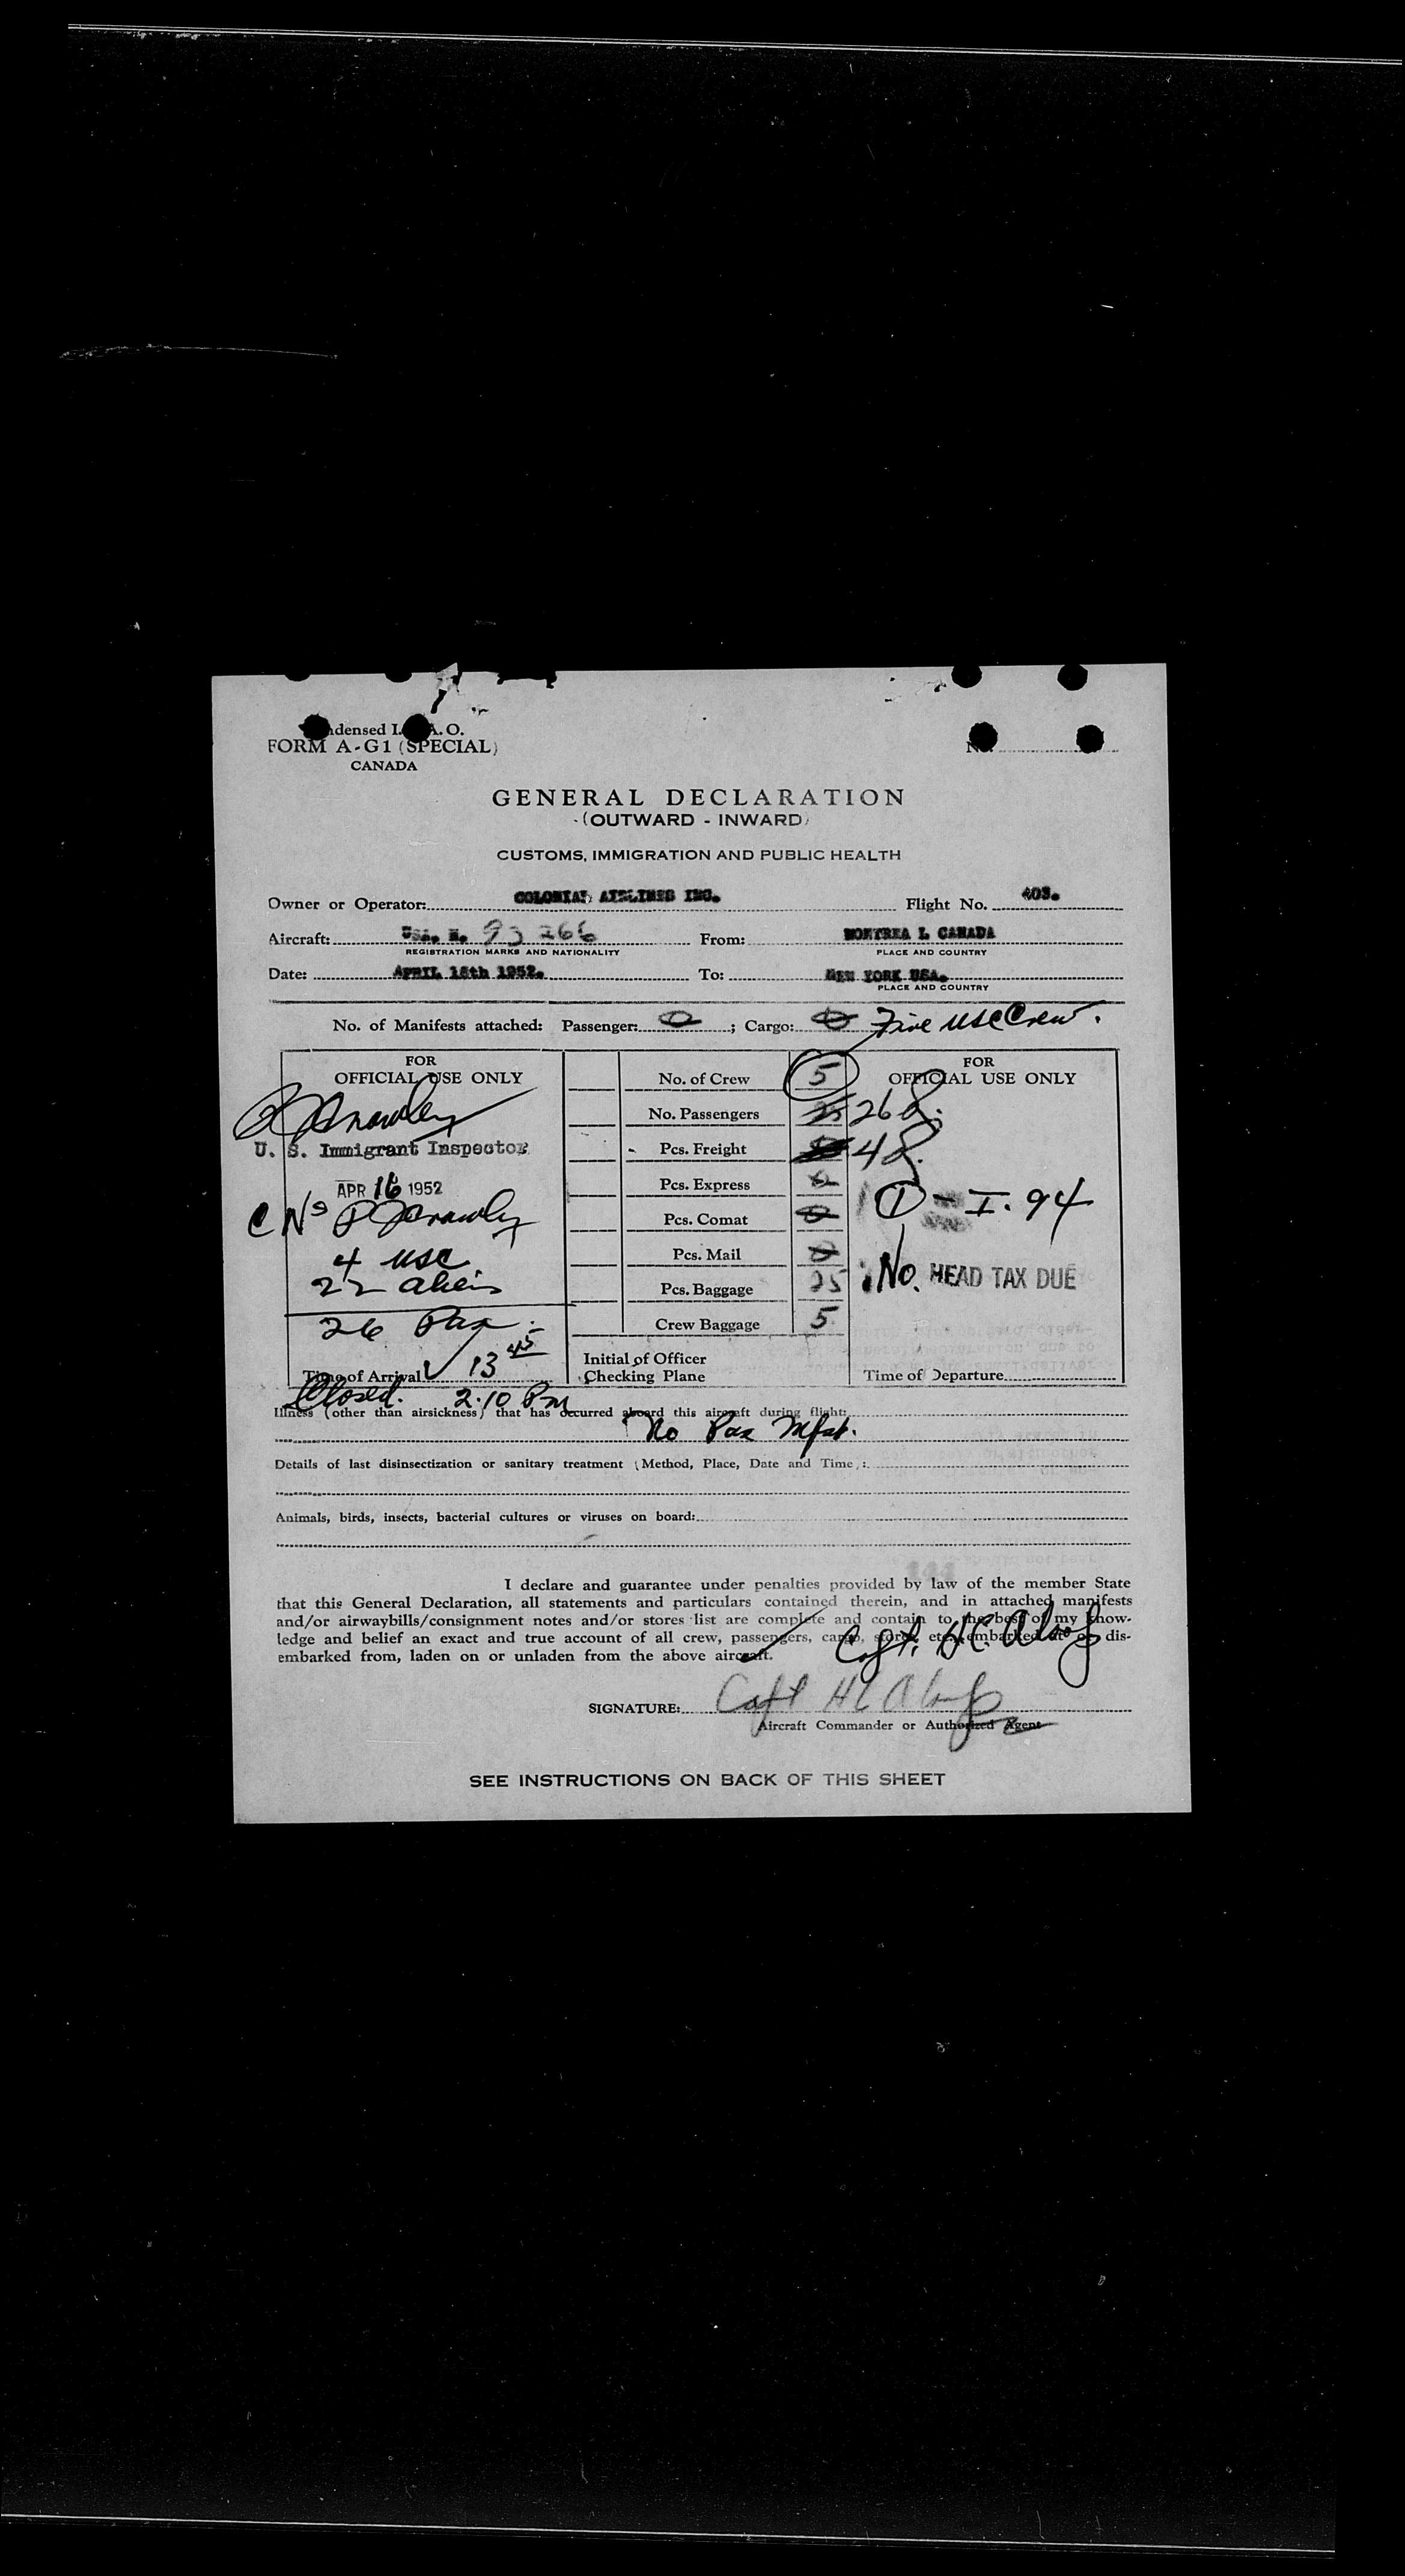 FORM A-G1 (SPECIAL)
CANADA
GENERAL DECLARATION
(OUTWARD - INWARD)
CUSTOMS, IMMIGRATION AND PUBLIC HEALTH
Owner or Operator: COLONIAL AIRLINES INC. Flight No. 403.
Aircraft: USA. N. 93266 From: MONTREAL CANADA
REGISTRATION MARKS AND NATIONALITY PLACE AND COUNTRY
Date: APRIL 16th 1952. To: NEW YORK USA.
PLACE AND COUNTRY
No. of Manifests attached: Passenger: 0; Cargo: 0 Five USC Crew.
FOR
OFFICIAL USE ONLY
U. S. Immigrant Inspector
APR 16 1952
4 USC
22 aliens
26 Pax.
Time of Arrival 13 45
Closed. 2:10 Pm
No. of Crew 5
No. Passengers 25 26
Pcs. Freight 48
Pcs. Express 0
Pcs. Comat 0
Pcs. Mail 0
Pcs. Baggage 25
Crew Baggage 5
Initial of Officer
Checking Plane
FOR
OFFICIAL USE ONLY
1 - I. 94
No. HEAD TAX DUE
Time of Departure
Illness (other than airsickness) that has occurred aboard this aircraft during flight:
No Pax Mfst.
Details of last disinsectization or sanitary treatment (Method, Place, Date and Time):
Animals, birds, insects, bacterial cultures or viruses on board:
I declare and guarantee under penalties provided by law of the member State
that this General Declaration, all statements and particulars contained therein, and in attached manifests
and/or airwaybills/consignment notes and/or stores list are complete and contain to the best of my know-
ledge and belief an exact and true account of all crew, passengers, cargo, stores, etc. embarked at or dis-
embarked from, laden on or unladen from the above aircraft.
Capt. HC
SIGNATURE: Capt HC
Aircraft Commander or Authorized Agent
SEE INSTRUCTIONS ON BACK OF THIS SHEET